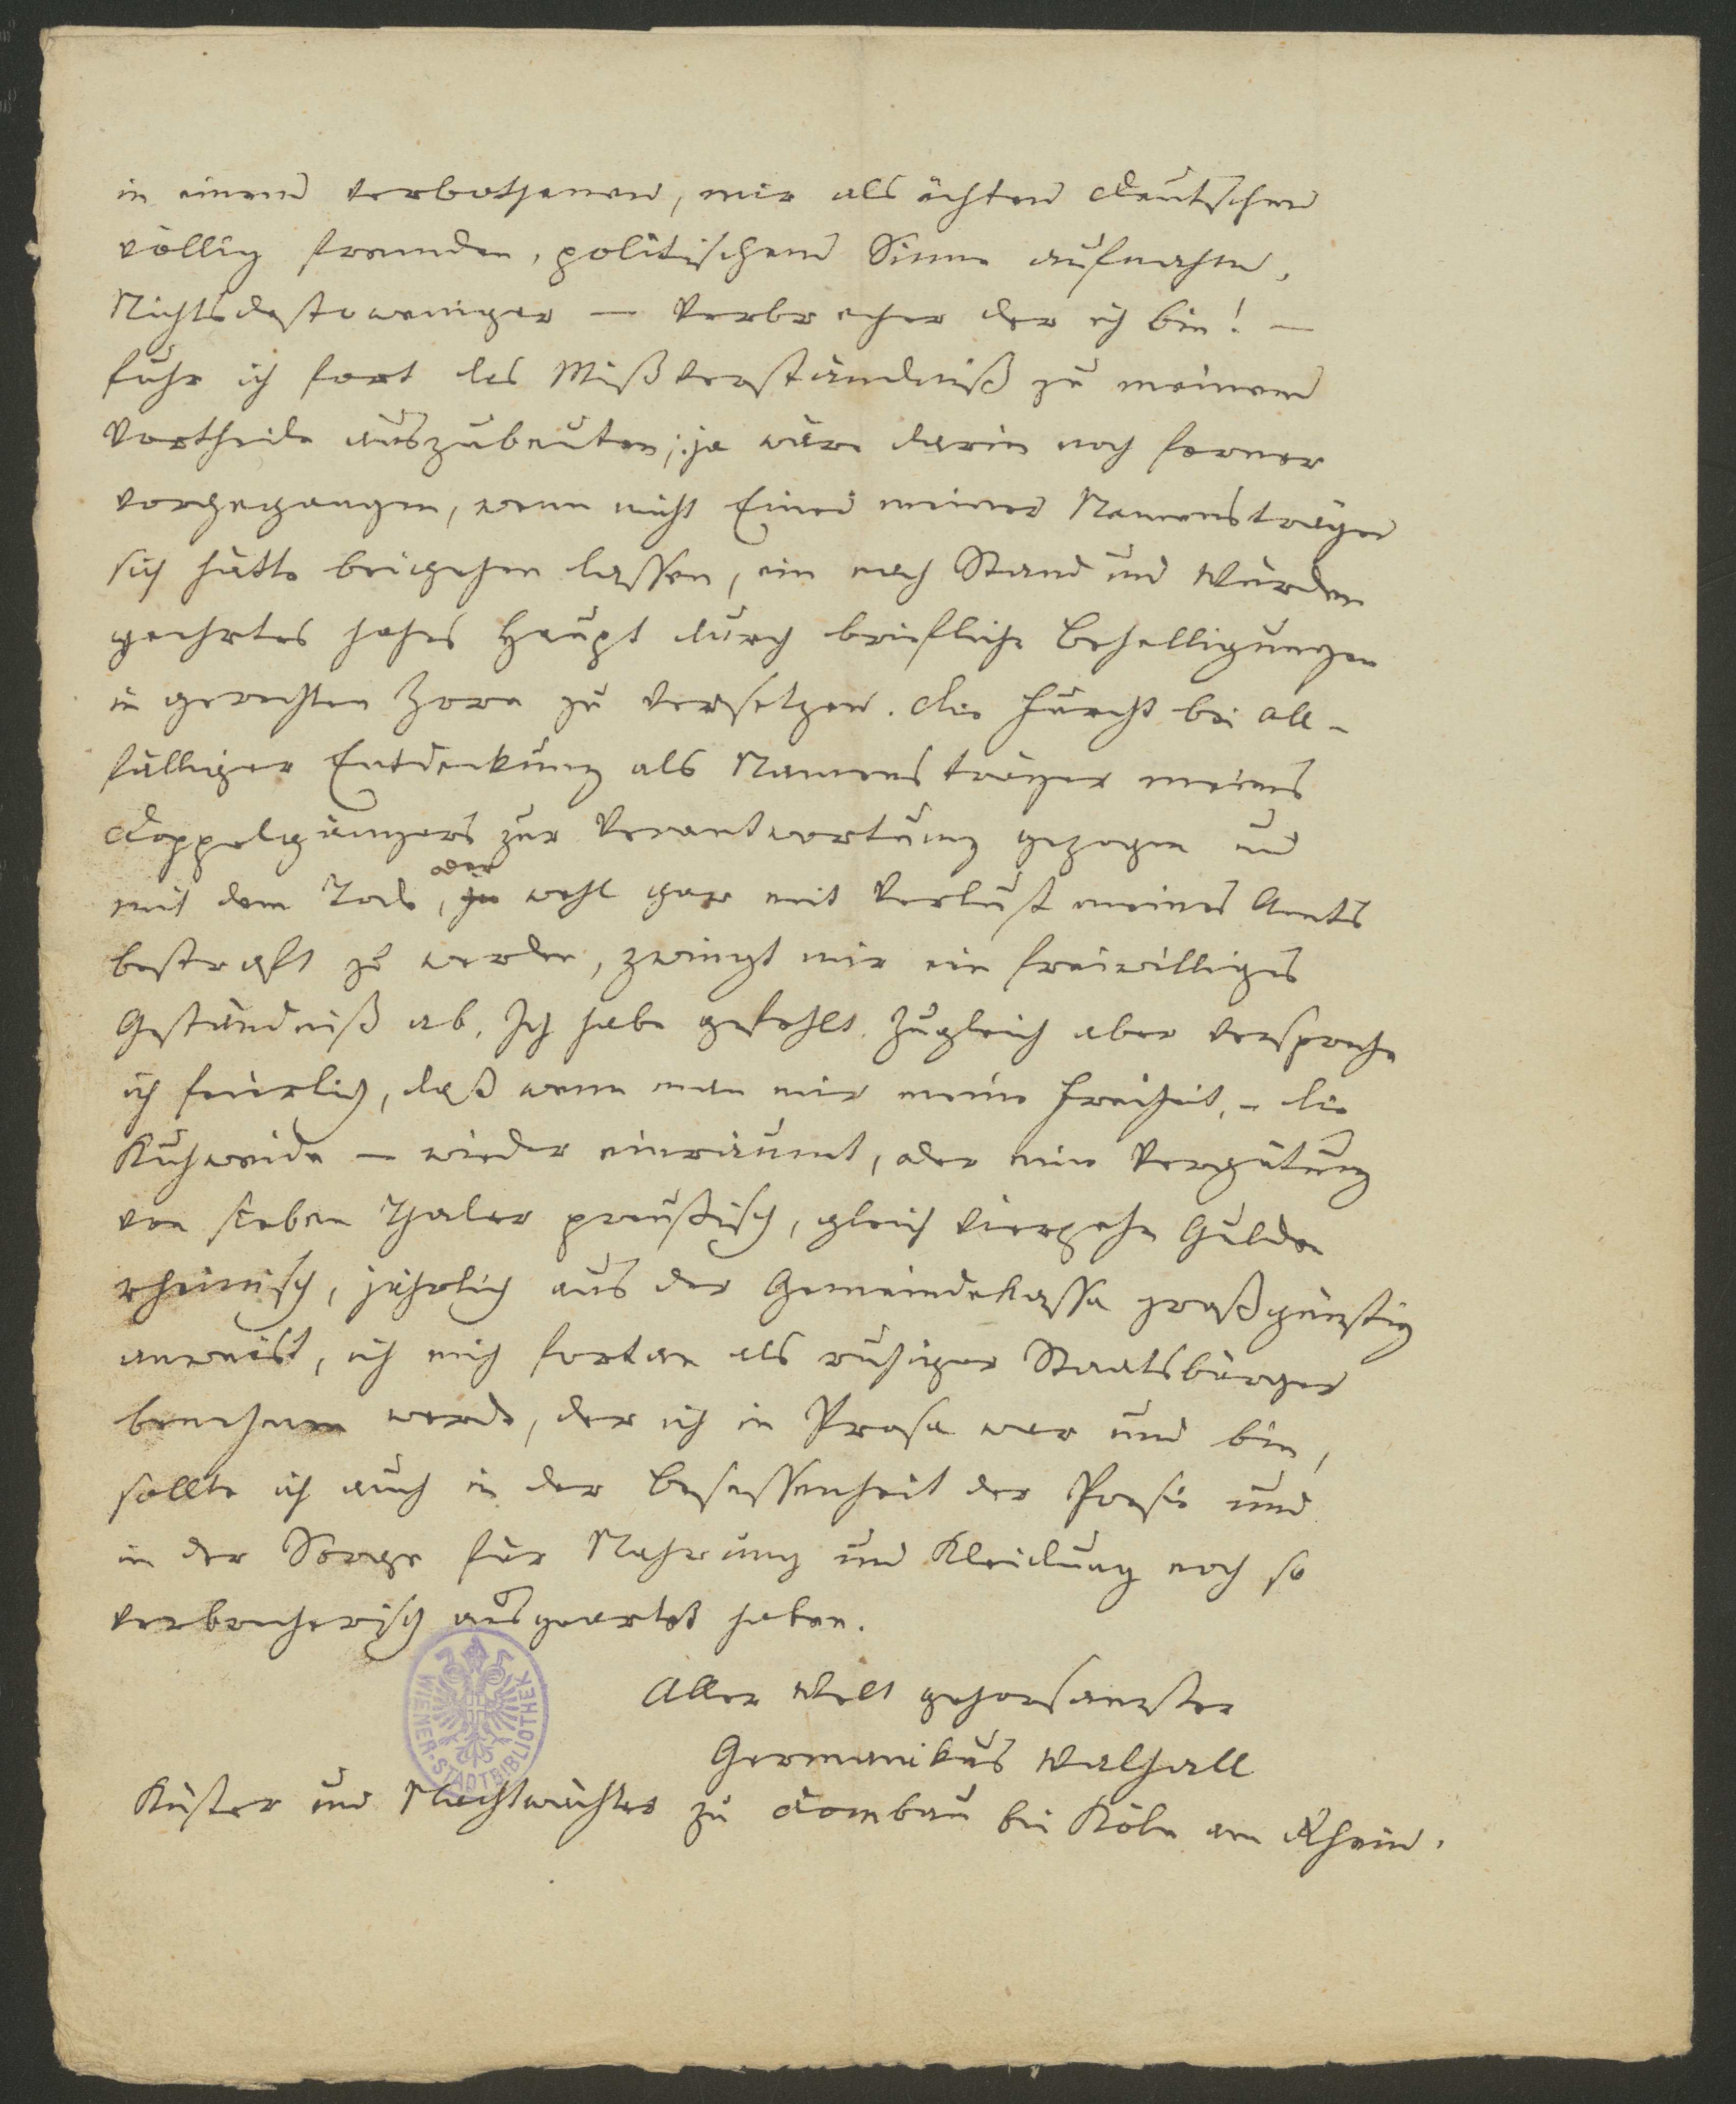 in einem verbothenen, mir als ächten Deutschen
völlig fremden, politischem Sinne aufnahm,
Nichtsdestoweniger — Verbrecher der ich bin! —
fuhr ich fort das Mißverständniß zu meinem
Vortheile auszubeuten; ja wäre darin noch ferner
vorgegangen, wenn nicht Einer meiner Namensträger
sich hätte beigehen lassen, ein nach Stand und Würden
geehrtes hohes Haupt durch briefliche Behelligungen
in gerechten Zorn zu versetzen. Die Furcht bei all-
fälliger Entdeckung als Namensträger meines
Doppelgängers zur Verantwortung gezogen und
mit dem Tode, ja oder wohl gar mit Verlust meines Amts
bestraft zu werden, zwingt mir ein freiwilliges
Geständniß ab. Ich habe gefehlt. Zugleich aber verspreche
ich feierlich, daß wenn man mir meine Freiheit, - die
Kuhweide — wieder einräumt, oder eine Vergütung
von sieben Thaler preußisch, gleich vierzehn Gulden
rheinisch, jährlich aus der Gemeindekassa großgünstig
anweist, ich mich fortan als ruhiger Staatsbürger
benehmen werde, der ich in Prosa war und bin,
sollte ich auch in der Besessenheit der Poesie und
in der Sorge für Nahrung und Kleidung noch so
verbrecherisch ausgeartet haben.
Aller Welt gehorsamster
Germanikus Walhall
Küster und Nachtwächter zu Dombau bei Köln am Rhein.
WIENER-STADTBIBLIOTHEK